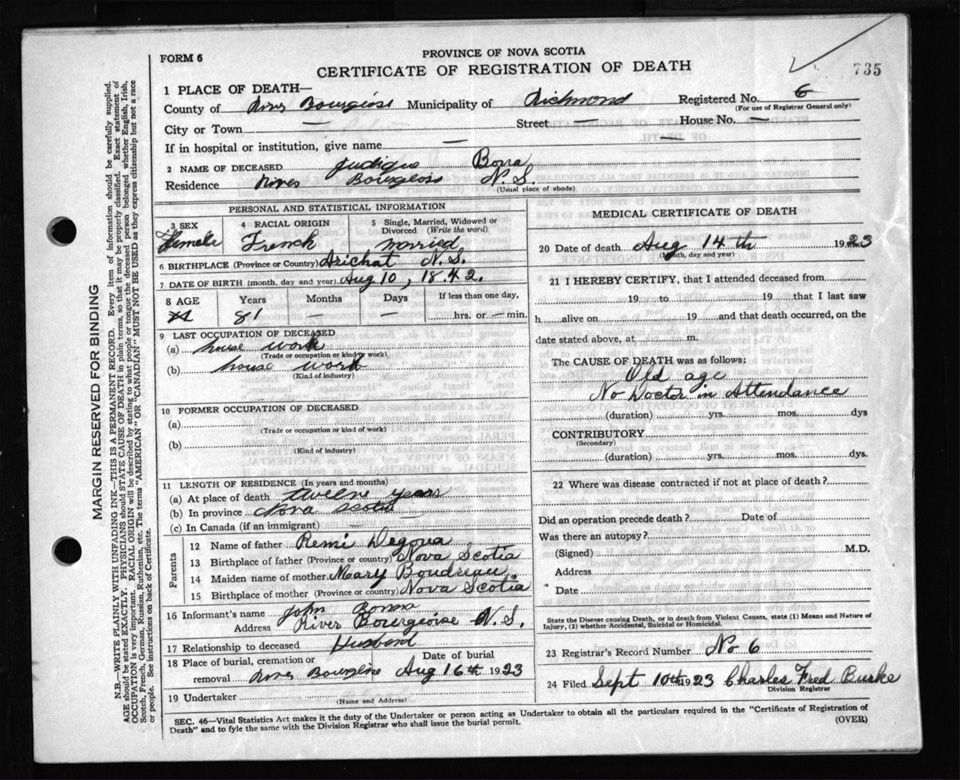 FORM 6
PROVINCE OF NOVA SCOTIA
CERTIFICATE OF REGISTRATION OF DEATH
735
1 PLACE OF DEATH—
County of River Bourgeois Municipality of Richmond Registered No. 6
(For use of Registrar General only)
City or Town — Street — House No. —
If in hospital or institution, give name — —
2 NAME OF DECEASED Judique Bona
Residence River Bourgeois N.S.
(Usual place of abode)
PERSONAL AND STATISTICAL INFORMATION
3 SEX Female
4 RACIAL ORIGIN French
5 Single, Married, Widowed or Divorced (Write the word) married
6 BIRTHPLACE (Province or Country) Arichat N.S.
7 DATE OF BIRTH (month, day and year) Aug 10, 1842.
8 AGE Years Months Days If less than one day,
81 — — hrs. or — min.
9 LAST OCCUPATION OF DECEASED
(a) house work
(Trade or occupation or kind of work)
(b) house work
(Kind of industry)
10 FORMER OCCUPATION OF DECEASED
(a)
(Trade or occupation or kind of work)
(b)
(Kind of industry)
11 LENGTH OF RESIDENCE (In years and months)
(a) At place of death twelve years
(b) In province Nova Scotia
(c) In Canada (if an immigrant) —
Parents
12 Name of father Remi Degoua
13 Birthplace of father (Province or country) Nova Scotia
14 Maiden name of mother Mary Boudreau
15 Birthplace of mother (Province or Country) Nova Scotia
16 Informant's name John Bonna
Address River Bourgeoise N.S.
17 Relationship to deceased Husband
18 Place of burial, cremation or removal River Bourgeoise Date of burial Aug 16th 1923
19 Undertaker
(Name and Address)
MEDICAL CERTIFICATE OF DEATH
20 Date of death Aug 14th 1923
(Month, day and year)
21 I HEREBY CERTIFY, that I attended deceased from
19 to 19 that I last saw
h alive on 19 and that death occurred, on the
date stated above, at m.
The CAUSE OF DEATH was as follows:
Old age
No Doctor in Attendance
(duration) yrs. mos. dys
CONTRIBUTORY
(Secondary)
(duration) yrs. mos. dys.
22 Where was disease contracted if not at place of death?
Did an operation precede death? Date of
Was there an autopsy?
(Signed) M.D.
Address
Date
State the Disease causing Death, or in death from Violent Causes, state (1) Means and Nature of
Injury, (2) whether Accidental, Suicidal or Homicidal.
23 Registrar's Record Number No 6
24 Filed Sept 10th 1923 Charles Fred Burke
Division Registrar
SEC. 46—Vital Statistics Act makes it the duty of the Undertaker or person acting as Undertaker to obtain all the particulars required in the "Certificate of Registration of
Death" and to fyle the same with the Division Registrar who shall issue the burial permit.
(OVER)
MARGIN RESERVED FOR BINDING
N.B.—WRITE PLAINLY WITH UNFADING INK—THIS IS A PERMANENT RECORD. Every item of information should be carefully supplied.
AGE should be stated EXACTLY. PHYSICIANS should STATE CAUSE OF DEATH in plain terms, so that it may be properly classified. Exact statement of
OCCUPATION is very important. RACIAL ORIGIN will be described by stating to what people or tongue the deceased person belonged whether English, Irish,
Scotch, French, German, Russian, Ruthenian, etc. The terms "AMERICAN" OR "CANADIAN" MUST NOT BE USED as they express citizenship but not a race
or people. See instructions on back of Certificate.